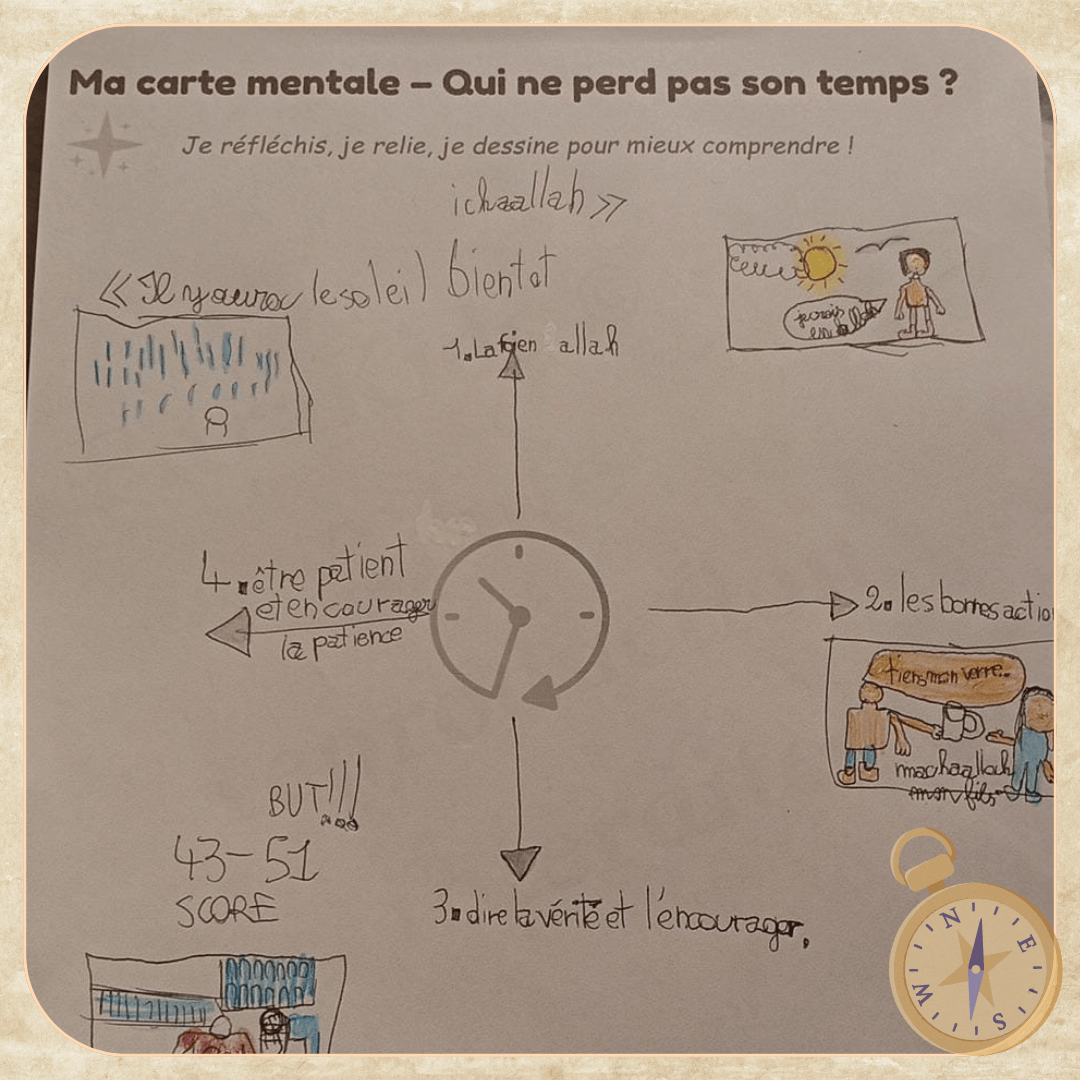 Ma carte mentale – Qui ne perd pas son temps ?
Je réfléchis, je relie, je dessine pour mieux comprendre !
ichaallah »
« Il y aura le soleil bientot
je crois en allah
1. La foi en allah
4. être patient
et encourager
la patience
2. les bonnes actio
tiens man verre..
machaallah
mon fils
BUT!!!
43-51
SCORE
3. dire la vérité et l'encourager.
N
E
S
W